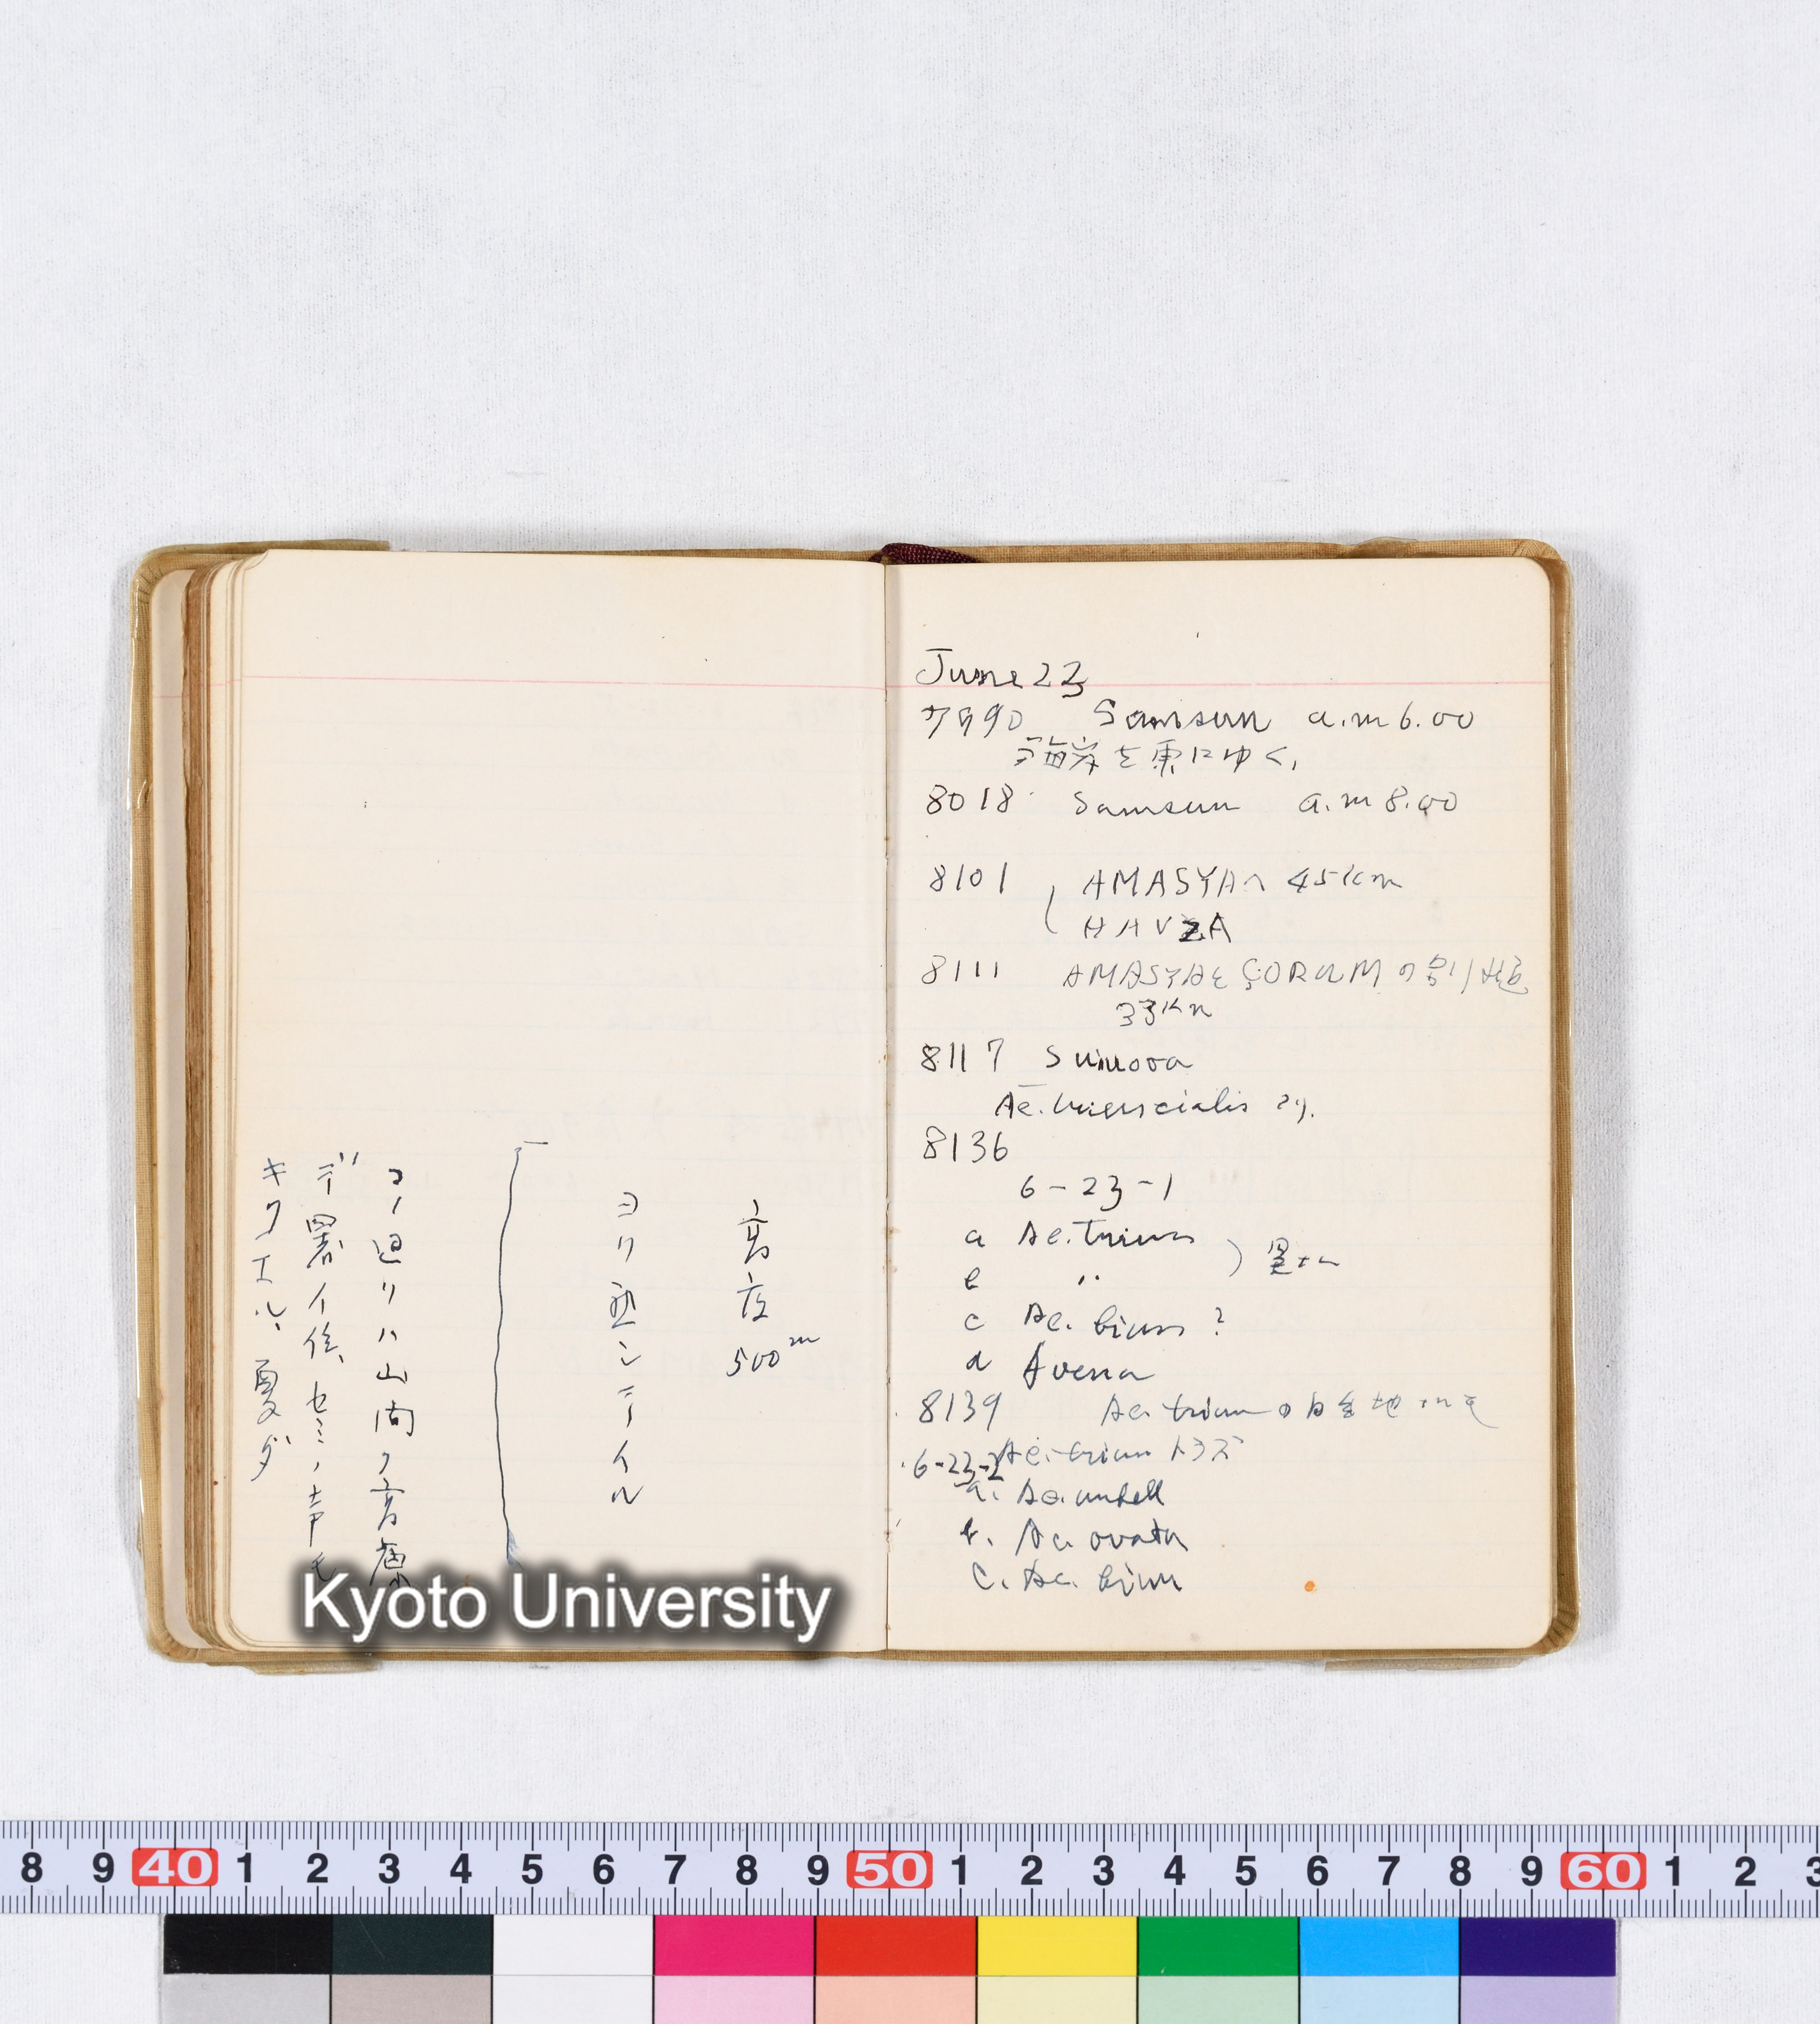 高度 500m
ヨリ열シテイル
コノ辺リハ山間ノ高原
デ暑イ位、セミノ声モ
キクエル、夏ダ
June 23
7990 Samsun a.m 6.00
海岸を東にゆく,
8018 Samsun a.m 8.00
8101 AMASYAへ 45Km
HAVZA
8111 AMASYAと ÇORUM の別れ道
33Km
8117 Suluova
Ae. triuncialis あり.
8136
6-23-1
a Ae. triun 異なる
b 〃
c Ae. biun ?
d Avena
8139 Ae. triun の自生地
6-23-2 Ae. triun トラズ
a. Ae. umbell
b. Ae. ovata
c. Ae. biun
Kyoto University
8 9 40 1 2 3 4 5 6 7 8 9 50 1 2 3 4 5 6 7 8 9 60 1 2 3